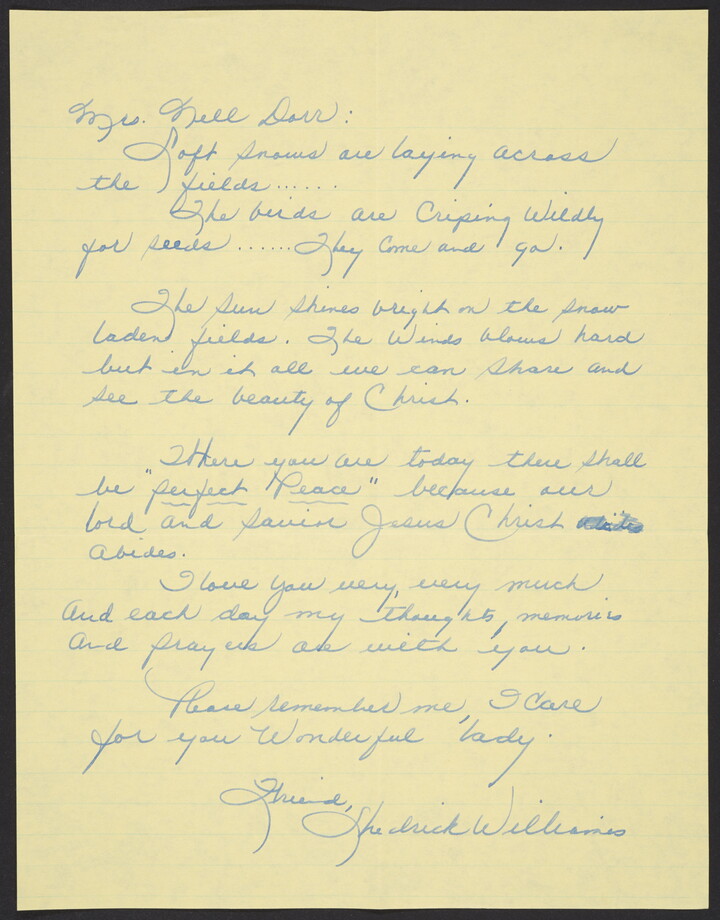 Mrs. Nell Dorr:
Soft snows are laying across
the fields......
The birds are Criping Wildly
for seeds ...... They Come and go.
The Sun Shines bright on the snow
laden fields. The Winds blows hard
but in it all we can Share and
see the beauty of Christ.
Where you are today there shall
be "perfect Peace" because our
lord and Savior Jesus Christ
abides.
I love you very, very much
And each day my thoughts, memories
And prayers are with you.
Please remember me, I Care
for you Wonderful lady.
Friend,
Shedrick Williames